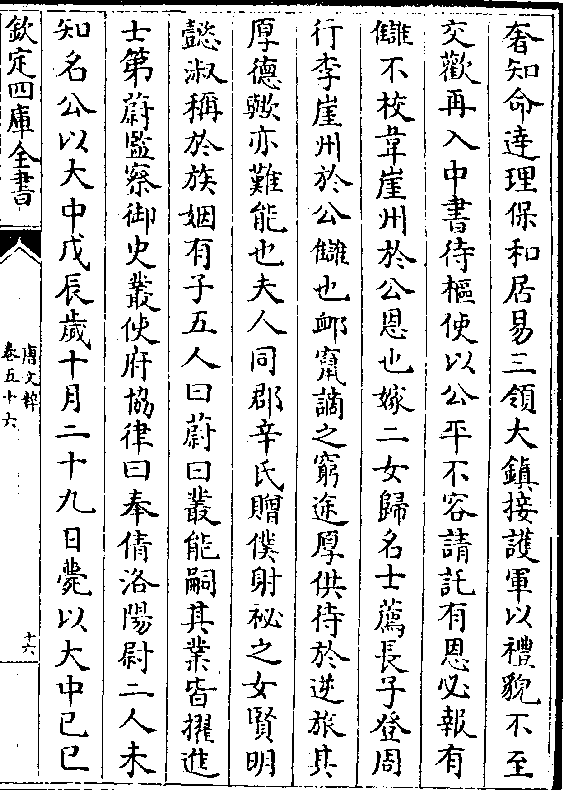 奢知命達理保和居易三領大鎮接護軍以禮貌不至
交歡再入中書待樞使以公平不容請託有恩必報有
讎不校韋崖州於公恩也嫁二女歸名士薦長子登周
行李崖州於公讎也䘏竄謫之窮途厚供待於逆旅其
厚德歟亦難能也夫人同郡辛氏贈僕射祕之女賢明
懿淑稱於族姻有子五人曰蔚曰叢能嗣其業皆擢進
士第蔚監察御史叢使府協律曰奉倩洛陽尉二人未
知名公以大中戊辰歲十月二十九日薨以大中已巳
欽定四庫全書
唐文粹
卷五十六
十六